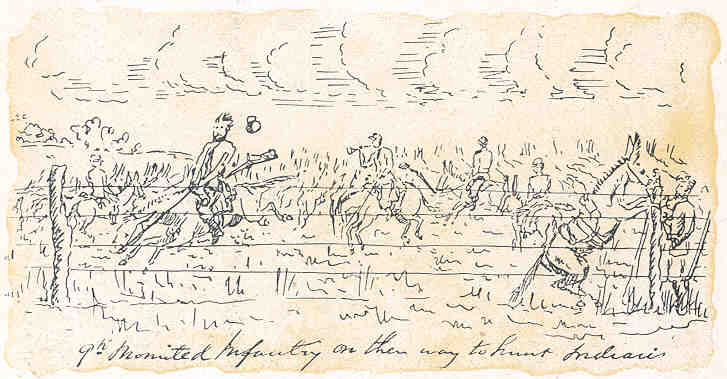 9th Mounted Infantry on their way to hunt Indians